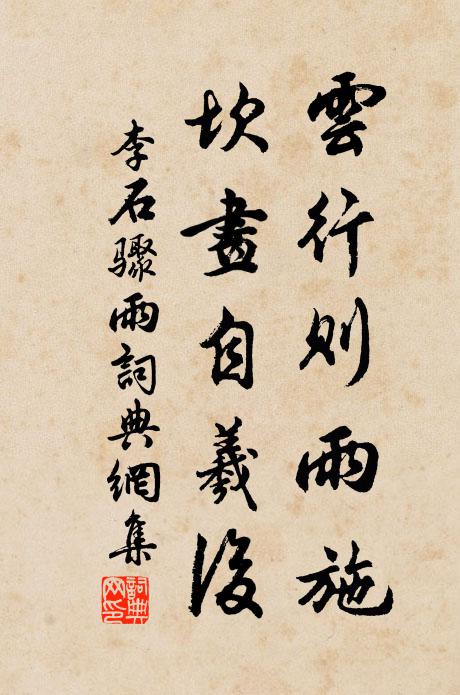 雲行則雨施
坎畫自羲後
李石驟雨詞典網集
詞典网印